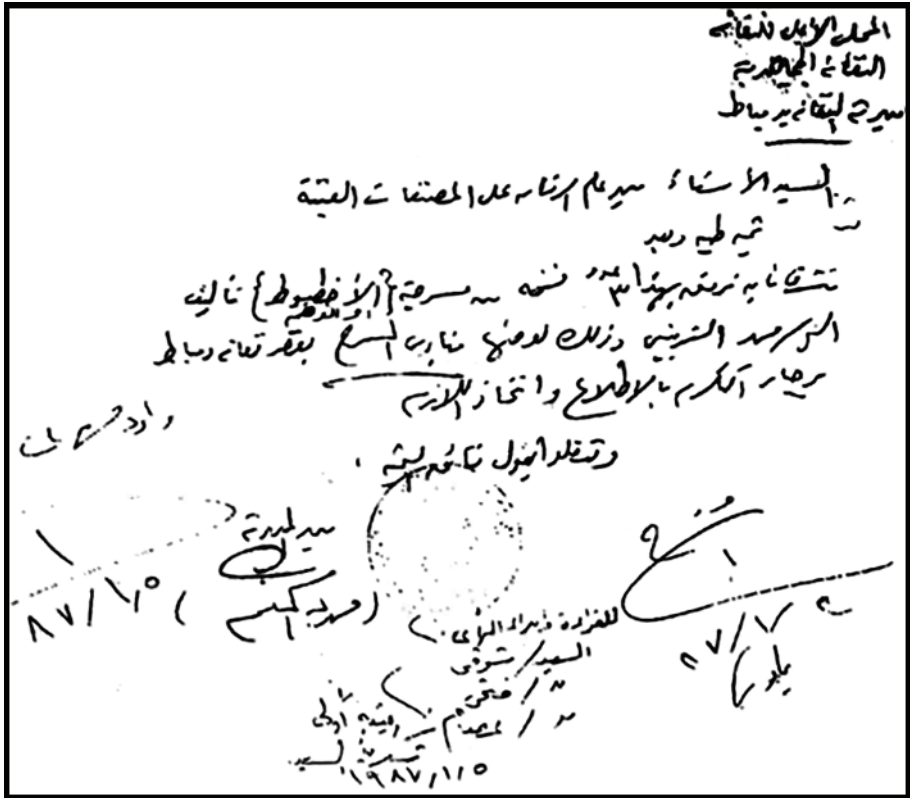 المجلس الأعلى للثقافة
الثقافة الجماهيرية
مديرية الثقافة بدمياط
السيد الأستاذ / مدير عام الرقابة على المصنفات الفنية
تحية طيبة وبعد
نتشرف بأن نرفق بهذا عدد ٣ نسخة من مسرحية {الأخطبوط} تأليف
أو الوهم
السيد محمد الشربيني وذلك لعرضها بنادي المسرح بقصر ثقافة دمياط
برجاء التكرم بالاطلاع واتخاذ اللازم
وتفضلوا بقبول فائق التحية .
مدير المديرية
٨٧/١/٥
٨٧/١/
يناير
للقراءة وإبداء الرأي
السيد / شوقي
" / فتحي
" /
١٩٨٧/١/٥